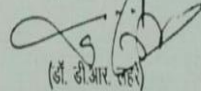 (डॉ. डी.आर. लहरे)